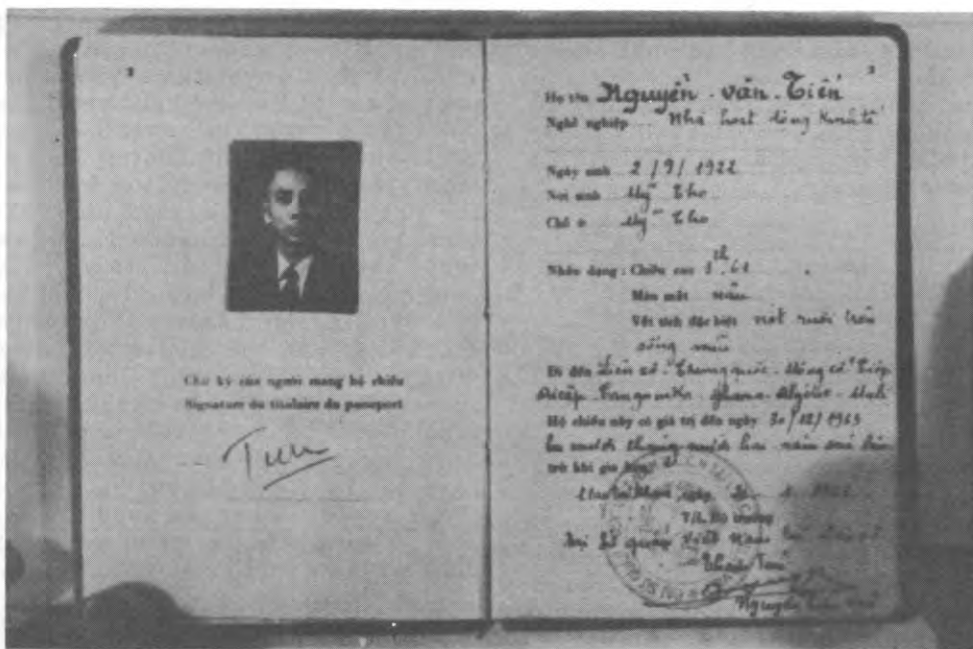 2
Chữ ký của người mang hộ chiếu
Signature du titulaire du passeport
3
Họ tên Nguyễn-văn-Tiến
Nghề nghiệp Nhà hoạt động Kinh tế
Ngày sinh 2/9/1922
Nơi sinh Mỹ Tho
Chỗ ở Mỹ Tho
Nhân dạng: Chiều cao 1m61
Màu mắt nâu
Vết tích đặc biệt nốt ruồi trên
sống mũi
Đi đến Liên xô - Trung quốc - Mông cổ - Tiệp
Ghana - Algérie
Hộ chiếu này có giá trị đến ngày 30/12/1965
ba mươi tháng mười hai năm sáu lăm
trừ khi gia hạn
ngày
T/L Bộ trưởng
Đại sứ quán Việt Nam
Nguyễn